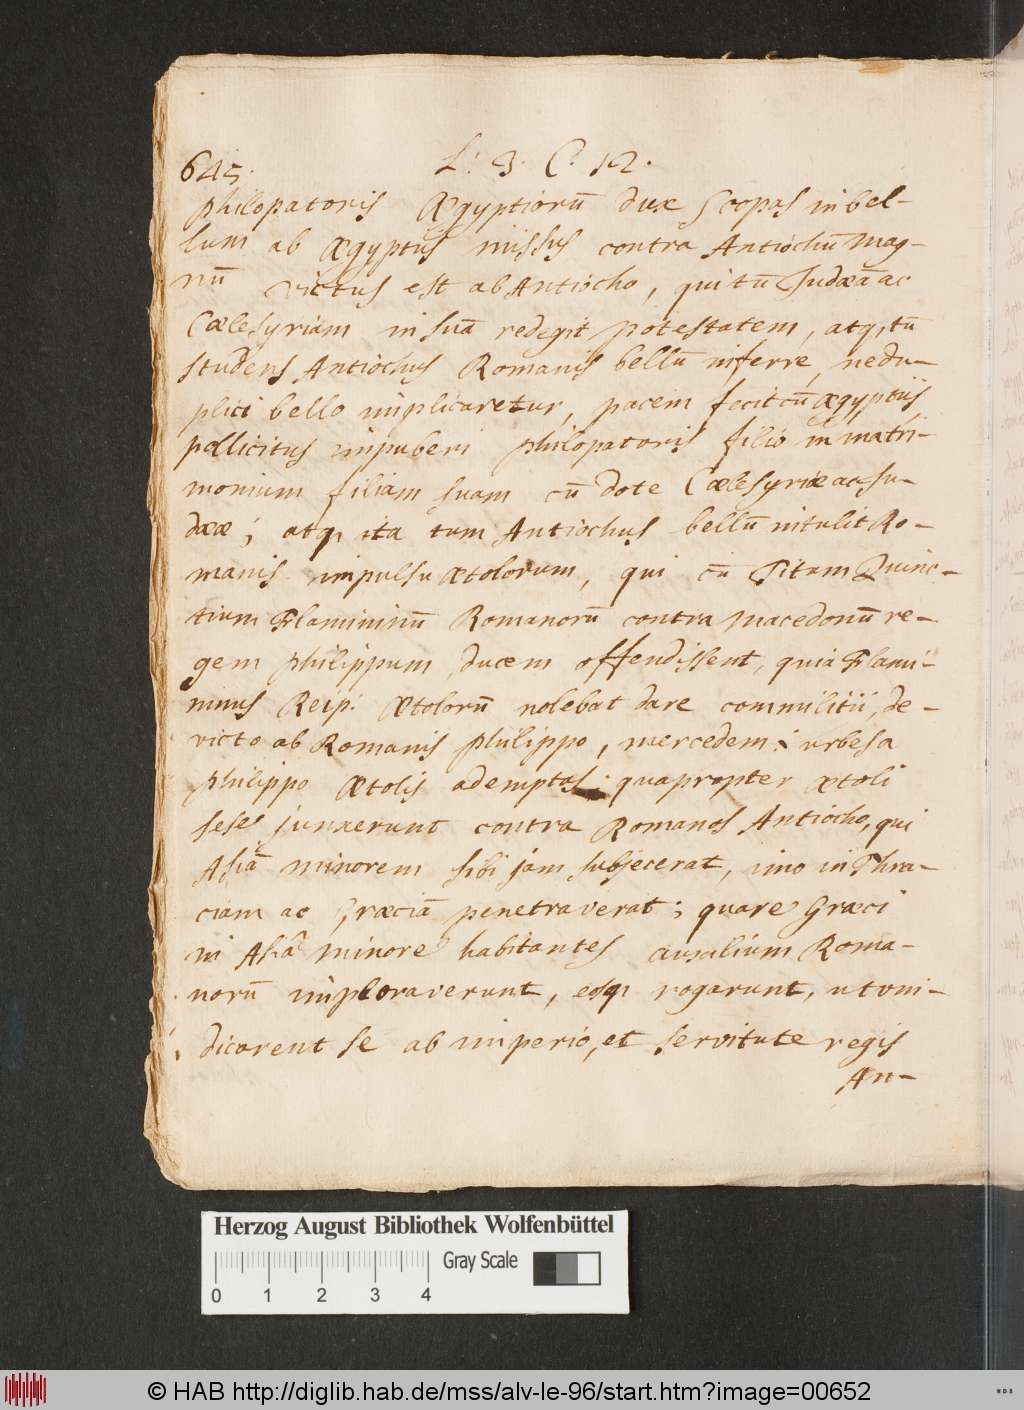 645.
L: 3. C. 12.
Philopatoris Ægyptiorū dux Scopas in bel-
lum ab Ægyptijs missus contra Antiochū Mag-
nū victus est ab Antiocho, qui tū Judæā ac
Cœlesyriam in suā redegit potestatem, atq, tū
studens Antiochus Romanis bellū inferre, ne du-
plici bello implicaretur, pacem fecit cū Ægyptijs
pollicitus impuberi Philopatoris filio in matri-
monium filiam suam cū dote Cœlesyriæ ac Ju-
dææ; atq, ita tum Antiochus bellū intulit Ro-
manis impulsu Ætolorum, qui cū Titum Quinc-
tium Flamininū Romanorū contra Macedonū re-
gem Philippum, ducem offendissent, quia Flami-
ninus Reip: Ætolorū nolebat dare commilitii, de-
victo ab Romanis Philippo, mercedem: urbes a
Philippo Ætolis ademptas; quapropter Ætoli
sese junxerunt contra Romanos Antiocho, qui
Asiā minorem sibi jam subjecerat, imo in Thra-
ciam ac Græciā penetraverat; quare Græci
in Asiâ minore habitantes auxilium Roma-
norū imploraverunt, eosq, rogarunt, ut vin-
dicarent se ab imperio, et servitute regis
An-
Herzog August Bibliothek Wolfenbüttel
0 1 2 3 4
Gray Scale
© HAB http://diglib.hab.de/mss/alv-le-96/start.htm?image=00652